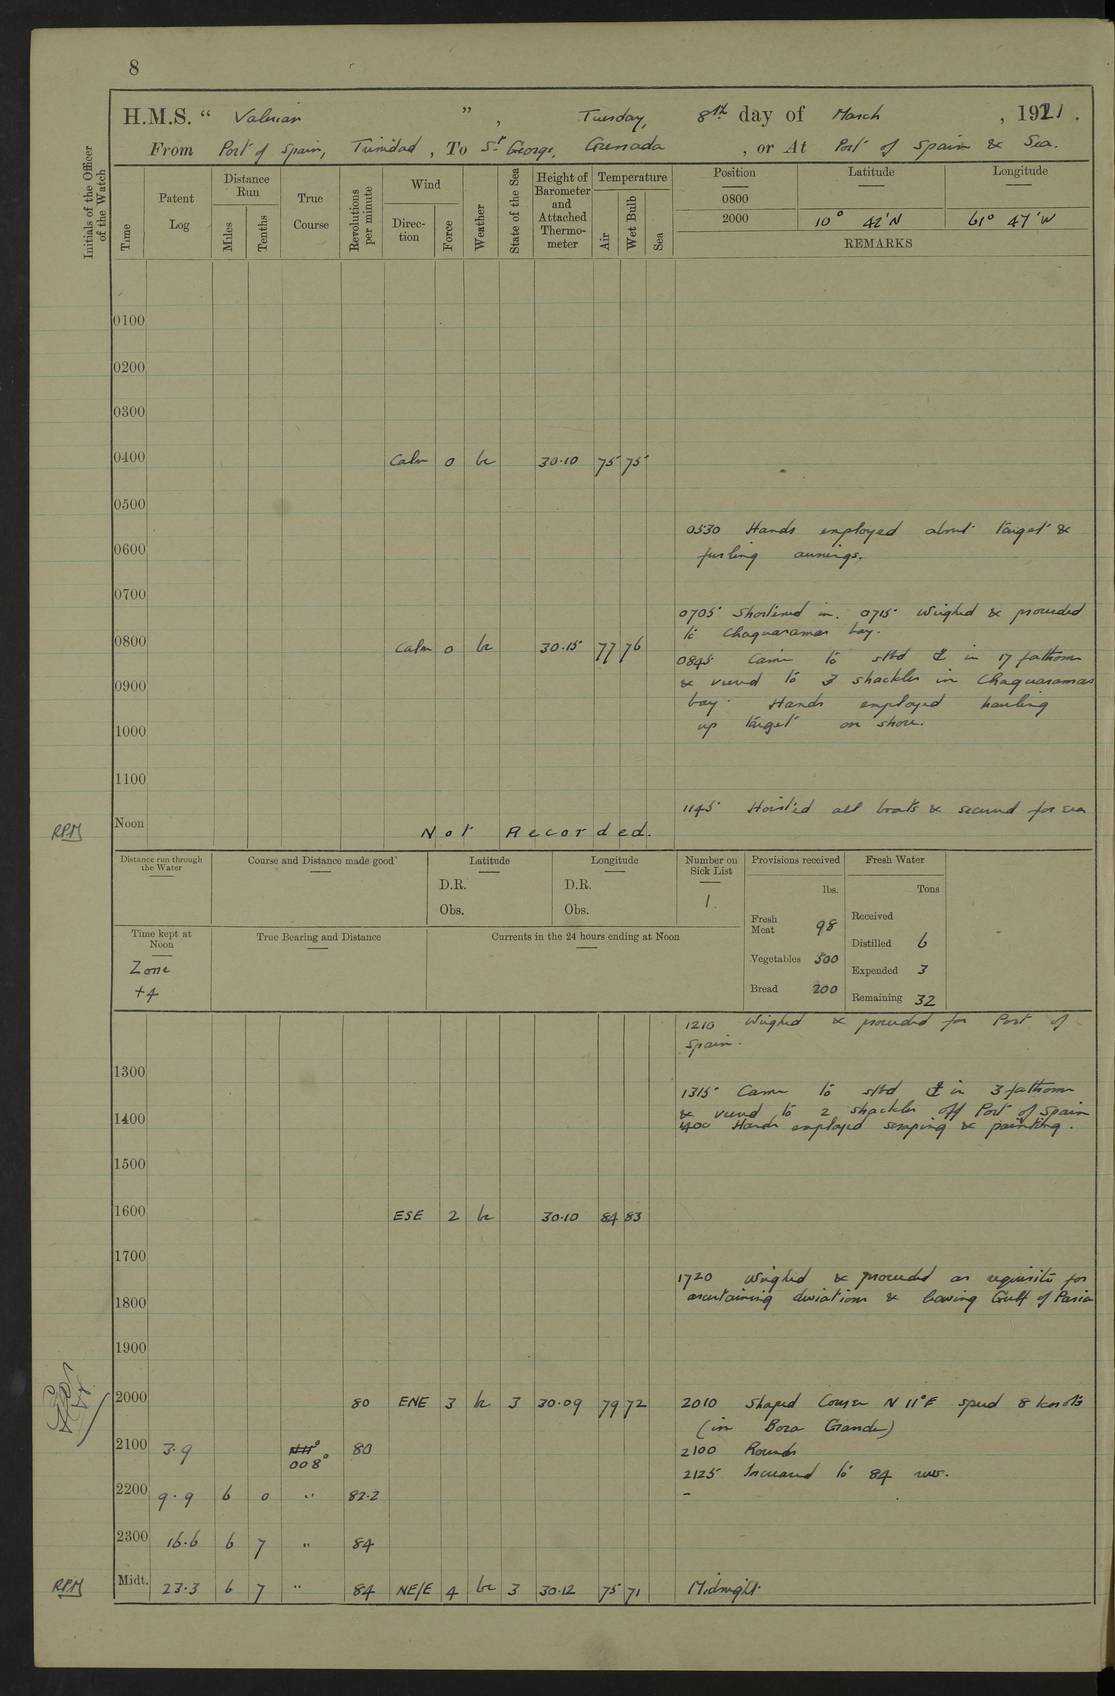 8
H.M.S. " Valerian " , Tuesday, 8th day of March , 1921.
From Port of Spain, Trinidad, To St George, Grenada , or At Port of Spain & Sea.
Initials of the Officer of the Watch
Time
Patent Log
Distance Run
Miles
Tenths
True Course
Revolutions per minute
Wind
Direction
Force
Weather
State of the Sea
Height of Barometer and Attached Thermometer
Temperature
Air
Wet Bulb
Sea
Position
Latitude
Longitude
0800
2000 10° 42'N 61° 47'W
REMARKS
0100
0200
0300
0400 Calm 0 bc 30.10 75 75
0500
0530 Hands employed about target &
furling awnings.
0600
0700
0705 Shortened in. 0715 Weighed & proceeded
to Chaguaramas bay.
0800 Calm 0 bc 30.15 77 76
0845 Came to stbd ⚓ in 17 fathoms
& veered to 3 shackles in Chaguaramas
bay. Hands employed hauling
up target on shore.
0900
1000
1100
1145 Hoisted all boats & secured for sea
RPM Noon Not Recorded.
Distance run through the Water
Course and Distance made good
Latitude
D.R.
Obs.
Longitude
D.R.
Obs.
Number on Sick List
1
Provisions received
lbs.
Fresh Meat 98
Vegetables 500
Bread 200
Fresh Water
Tons
Received
Distilled 6
Expended 3
Remaining 32
Time kept at Noon
Zone
+4
True Bearing and Distance
Currents in the 24 hours ending at Noon
1210 Weighed & proceeded for Port of
Spain.
1300
1315 Came to stbd ⚓ in 3 fathoms
& veered to 2 shackles off Port of Spain
1400 Hands employed scraping & painting.
1400
1500
1600 ESE 2 bc 30.10 84 83
1700
1720 Weighed & proceeded as requisite for
ascertaining deviations & leaving Gulf of Paria
1800
1900
2000 80 ENE 3 bc 3 30.09 79 72 2010 Shaped Course N 11°E speed 8 knots
(in Boca Grande)
2100 3.9 N 11° 008° 80 2100 Rounds
2125 Increased to 84 revs.
2200 9.9 6 0 " 82.2 -
2300 16.6 6 7 " 84
RPM Midt. 23.3 6 7 " 84 NE/E 4 bc 3 30.12 75 71 Midnight